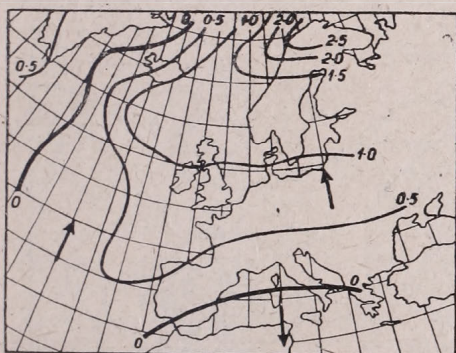 0 0.5 1.0 2.0
2.5
2.0
1.5
0.5
1.0
0
0.5
0
0